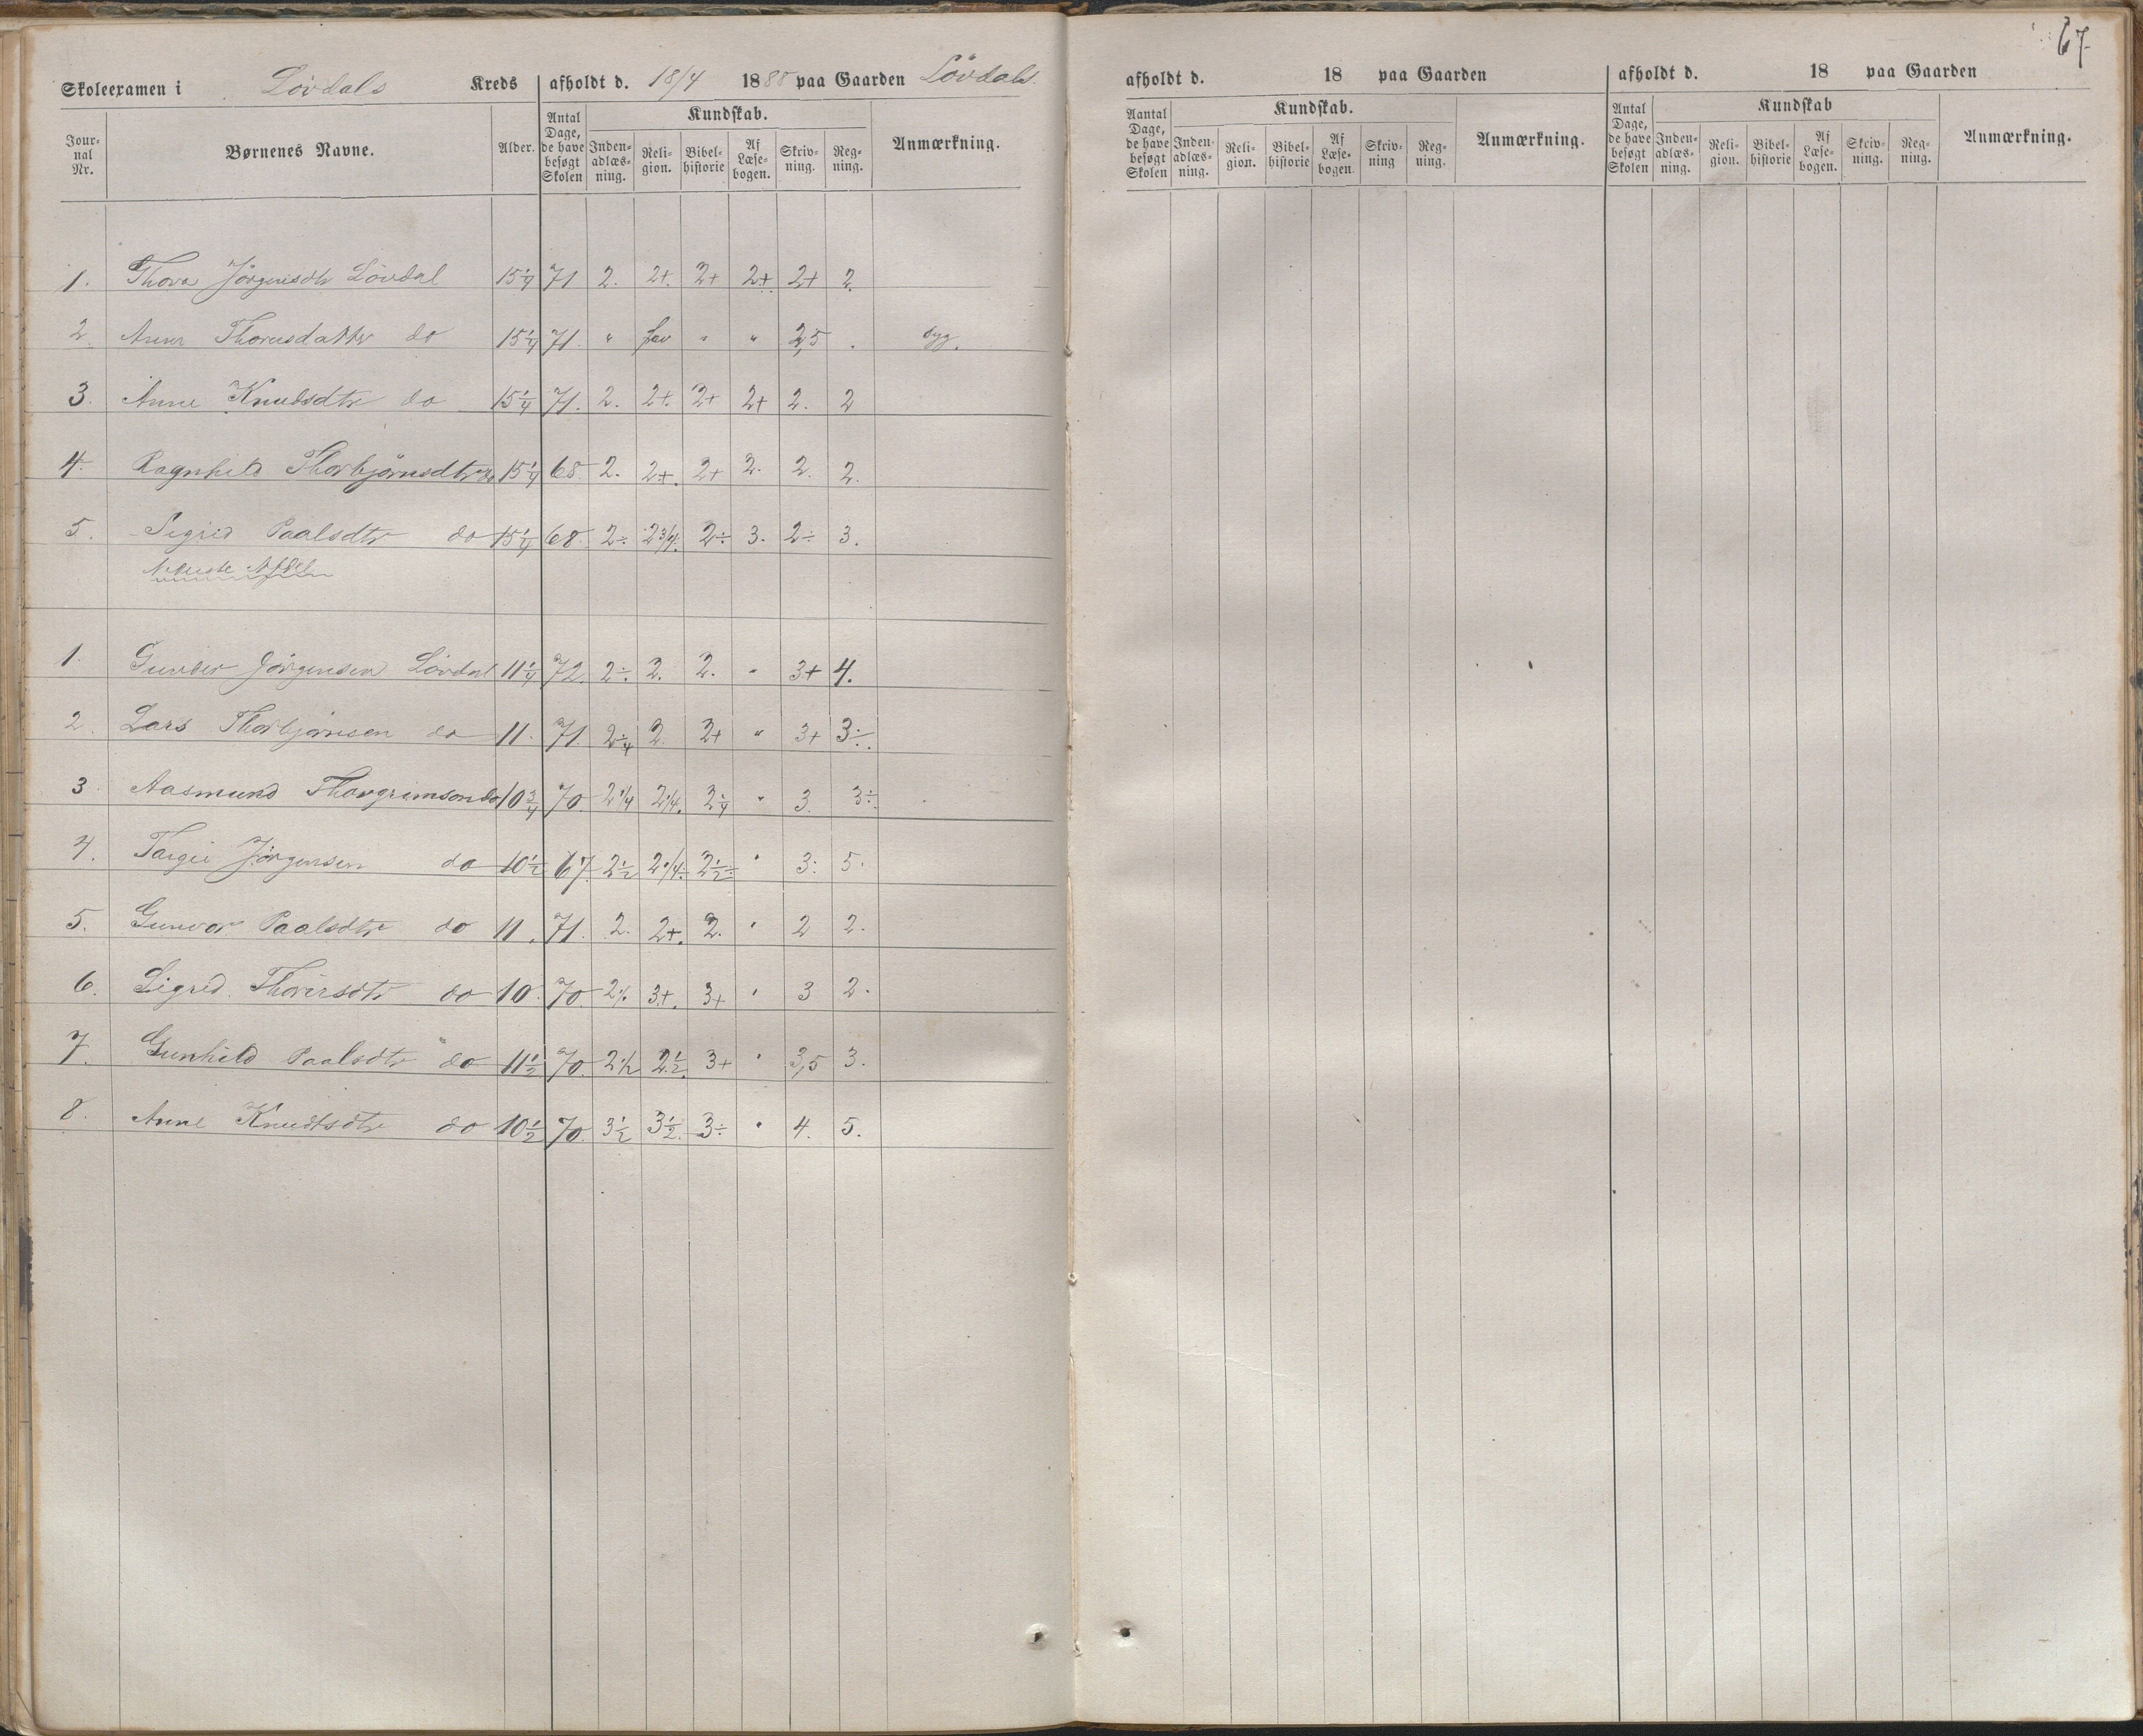 67
Skoleexamen i Lövdals Kreds afholdt d. 18/4 1888 paa Gaarden Lövdals
Jour-nal Nr. Børnenes Navne. Alder. Antal Dage, de have besøgt Skolen Kundskab. Inden-adlæs-ning. Reli-gion. Bibel-historie Af Læse-bogen. Skriv-ning. Reg-ning. Anmærkning.
1. Thora Jörgensdtr Lövdal 15 1/4 71 2. 2+. 2+ 2+. 2+ 2.
2. Anne Thorusdatter do 15 1/4 71. " " " 2,5 . syg.
3. Anne Knudsdtr do 15 1/4 71. 2. 2+. 2+ 2+ 2. 2
4. Ragnhild Thorbjörnsdtr do 15 1/4 68. 2. 2+. 2+ 2. 2. 2.
5. Sigrid Paalsdtr do 15 1/4 68. 2÷ 2 3/4. 2÷ 3. 2÷ 3.
1. Gunder Jörgensen Lövdal 11 1/4 72. 2÷. 2. 2. " 3+ 4.
2. Lars Thorbjörnsen do 11. 71. 2 1/4 2. 2+ " 3+ 3÷.
3 Aasmund Thorgrimsen do 10 3/4 70. 2 1/4 2 1/4. 2 1/4 " 3. 3÷.
4. Targei Jörgensen do 10 1/2 67. 2 1/2 2 1/4. 2 1/2÷ " 3. 5.
5. Gunvor Paalsdtr do 11. 71. 2. 2+. 2. " 2 2.
6. Sigrid Thorersdtr do 10. 70. 2÷ 3+. 3+ " 3 2.
7. Gunhild Paalsdtr do 11 1/2 70. 2 1/2 2 1/2. 3+ " 3,5 3.
8. Anne Knudtsdtr do 10 1/2 70. 3 1/2 3 1/2. 3÷ " 4. 5.
afholdt d. 18 paa Gaarden afholdt d. 18 paa Gaarden
Aantal Dage, de have besøgt Skolen Kundskab. Inden-adlæs-ning. Reli-gion. Bibel-historie Af Læse-bogen. Skriv-ning Reg-ning. Anmærkning.
Antal Dage, de have besøgt Skolen Kundskab Inden-adlæs-ning. Reli-gion. Bibel-historie Af Læse-bogen. Skriv-ning. Reg-ning. Anmærkning.